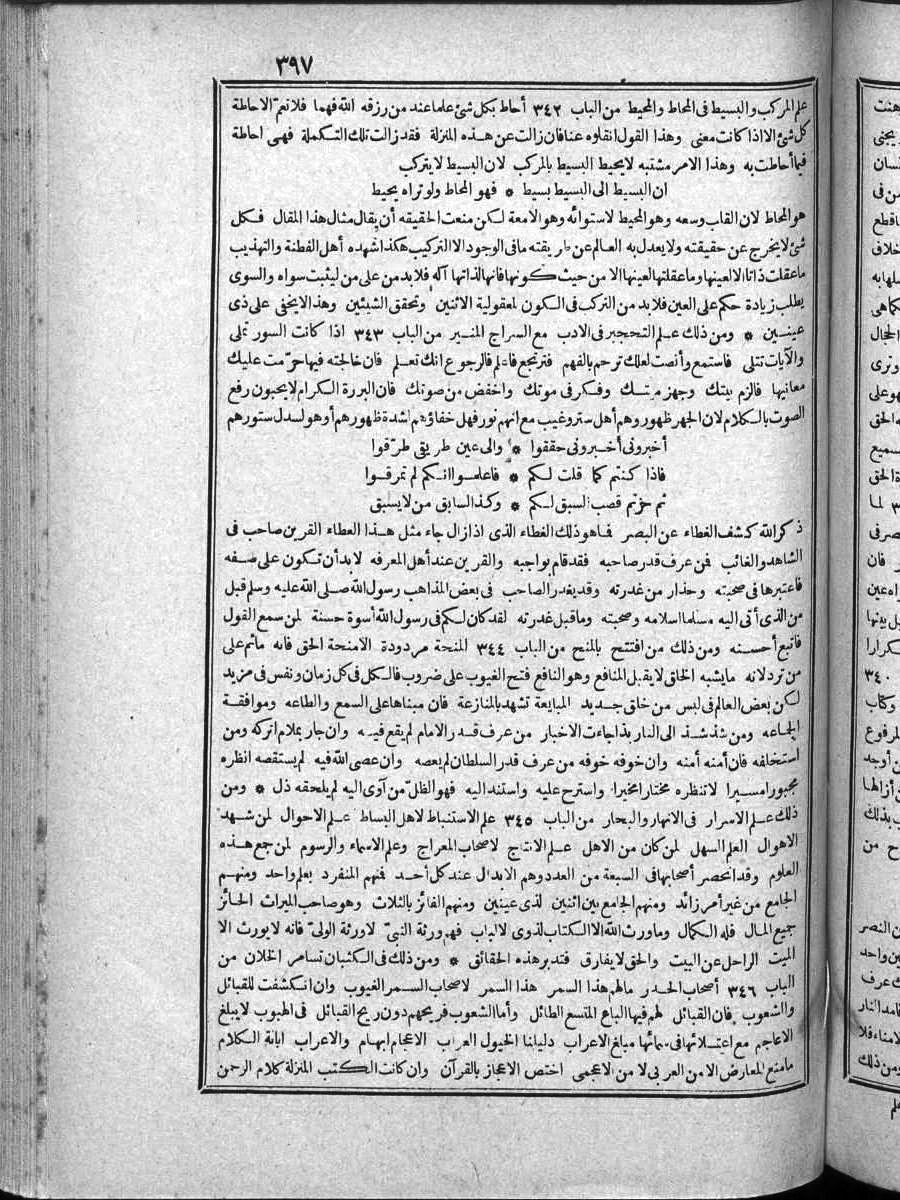 ٣٩٧
علم المركب والبسيط فى المحاط والمحيط من الباب ٣٤٢ أحاط بكل شئ علما عند من رزقه الله فهما فلا تعم الاحاطة
كل شئ الا اذا كانت معنى وهذا القول انقلوه عنا فان زالت عن هذه المنزلة فقد زالت تلك التكملة فهى احاطة
فيما أحاطت به وهذا الامر مشتبه لا يحيط البسيط بالمركب لان البسيط لا يتركب
ان البسيط الى البسيط بسيط * فهو المحاط ولو تراه يحيط
هو المحاط لان القلب وسعه وهو المحيط لاستوائه وهو الامعة لكن منعت الحقيقه أن يقال مثال هذا المقال فكل
شئ لا يخرج عن حقيقته ولا يعدل به العالم عن طريقته ما فى الوجود الا التركيب هكذا شهده أهل الفطنة والتهذيب
ما عقلت ذاتا الا لعينها وما عقلتها لعينها الا من حيث كونها فانها لذاتها آله فلا بد من على من ليثبت سواه والسوى
يطلب زيادة حكم على العين فلا بد من التركب فى الكون لمعقولية الاثنين وتحقق الشيئين وهذا لا يخفى على ذى
عينين * ومن ذلك علم التحجير فى الادب مع السراج المنير من الباب ٣٤٣ اذا كانت السور تملى
والآيات تتلى فاستمع وأنصت لعلك ترحم بالفهم فترجع فاعلم فالرجوع انك تعلم فان خالجته فيها حرّمت عليك
معانيها فالزم بيتك وجهز ميتك وفكر فى موتك واخفض من صوتك فان البررة الكرام لا يحبون رفع
الصوت بالكلام لان الجهر ظهور وهم أهل ستر وغيب مع انهم نور فهل خفاؤهم لشدة ظهورهم أو هو لسدل ستورهم
أخبرونى أخبرونى حققوا * والى عين طريقى طرّقوا
فاذا كنتم كما قلت لكم * فاعلموا انكم لم تمرقوا
ثم حزتم قصب السبق لكم * وكذا السابق من لا يسبق
ذكر الله كشف الغطاء عن البصر فما هو ذلك الغطاء الذى اذا زال جاء مثل هذا العطاء القرين صاحب فى
الشاهد والغائب فمن عرف قدر صاحبه فقد قام بواجبه والقرين عند أهل المعرفه لا بد أن تكون على صفه
فاعتبرها فى صحبته وحذار من غدرته وقد يغدر الصاحب فى بعض المذاهب رسول الله صلى الله عليه وسلم قبل
من الذى أتى اليه مسلما اسلامه وصحبته وما قبل غدرته لقد كان لكم فى رسول الله أسوة حسنة لمن سمع القول
فاتبع أحسنه ومن ذلك من افتتح بالمنح من الباب ٣٤٤ المنحة مردودة الا منحة الحق فانه ما ثم على
من ترد لانه ما يشبه الخلق لا يقبل المنافع وهو النافع فتح الغيوب على ضروب فالكل فى كل زمان ونفس فى مزيد
لكن بعض العالم فى لبس من خلق جديد المبايعة تشهد بالمنازعة فان مبناها على السمع والطاعه وموافقة
الجماعه ومن شذ شذ الى النار بذا جاءت الاخبار من عرف قدر الامام لم يقع فيه وان جار بملام اتركه ومن
استخلفه فان أمنه أمنه وان خوفه خوفه من عرف قدر السلطان لم يعصه وان عصى الله فيه لم يستقصه انظره
مجبورا مسيرا لا تنظره مختارا مخيرا واسترح عليه واستند اليه فهو الظل من آوى اليه لم يلحقه ذل * ومن
ذلك علم الاسرار فى الانهار والبحار من الباب ٣٤٥ علم الاستنباط لاهل البساط علم الاحوال لمن شهد
الاهوال العلم السهل لمن كان من الاهل علم الانتاج لاصحاب المعراج وعلم الاسماء والرسوم لمن جمع هذه
العلوم وقد انحصر أصحابها فى السبعة من العدد وهم الابدال عند كل أحد فمنهم المنفرد بعلم واحد ومنهم
الجامع من غير أمر زائد ومنهم الجامع بين اثنين لذى عينين ومنهم الفائز بالثلاث وهو صاحب الميراث الحائز
جميع المال فله الكمال وما ورث الله الا الكتاب لذوى الالباب فهم ورثة النبىّ لا ورثة الولىّ فانه لا يورث الا
الميت الراحل عن البيت والحق لا يفارق فتدبر هذه الحقائق * ومن ذلك فى الكثبان تسامر الخلان من
الباب ٣٤٦ أصحاب الحدر مالهم هذا السمر هذا السمر لاصحاب السمر الغيوب وان انكشفت للقبائل
والشعوب فان القبائل لهم فيها الباع المتسع الطائل وأما الشعوب فريحهم دون ريح القبائل فى الهبوب لا يبلغ
الاعاجم مع اعتلائها فى سمائها مبلغ الاعراب دليلنا الخيول العراب الاعجام ابهام والاعراب ابانة الكلام
ما منع المعارض الا من العربى لا من الاعجمى اختص الاعجاز بالقرآن وان كانت الكتب المنزلة كلام الرحمن